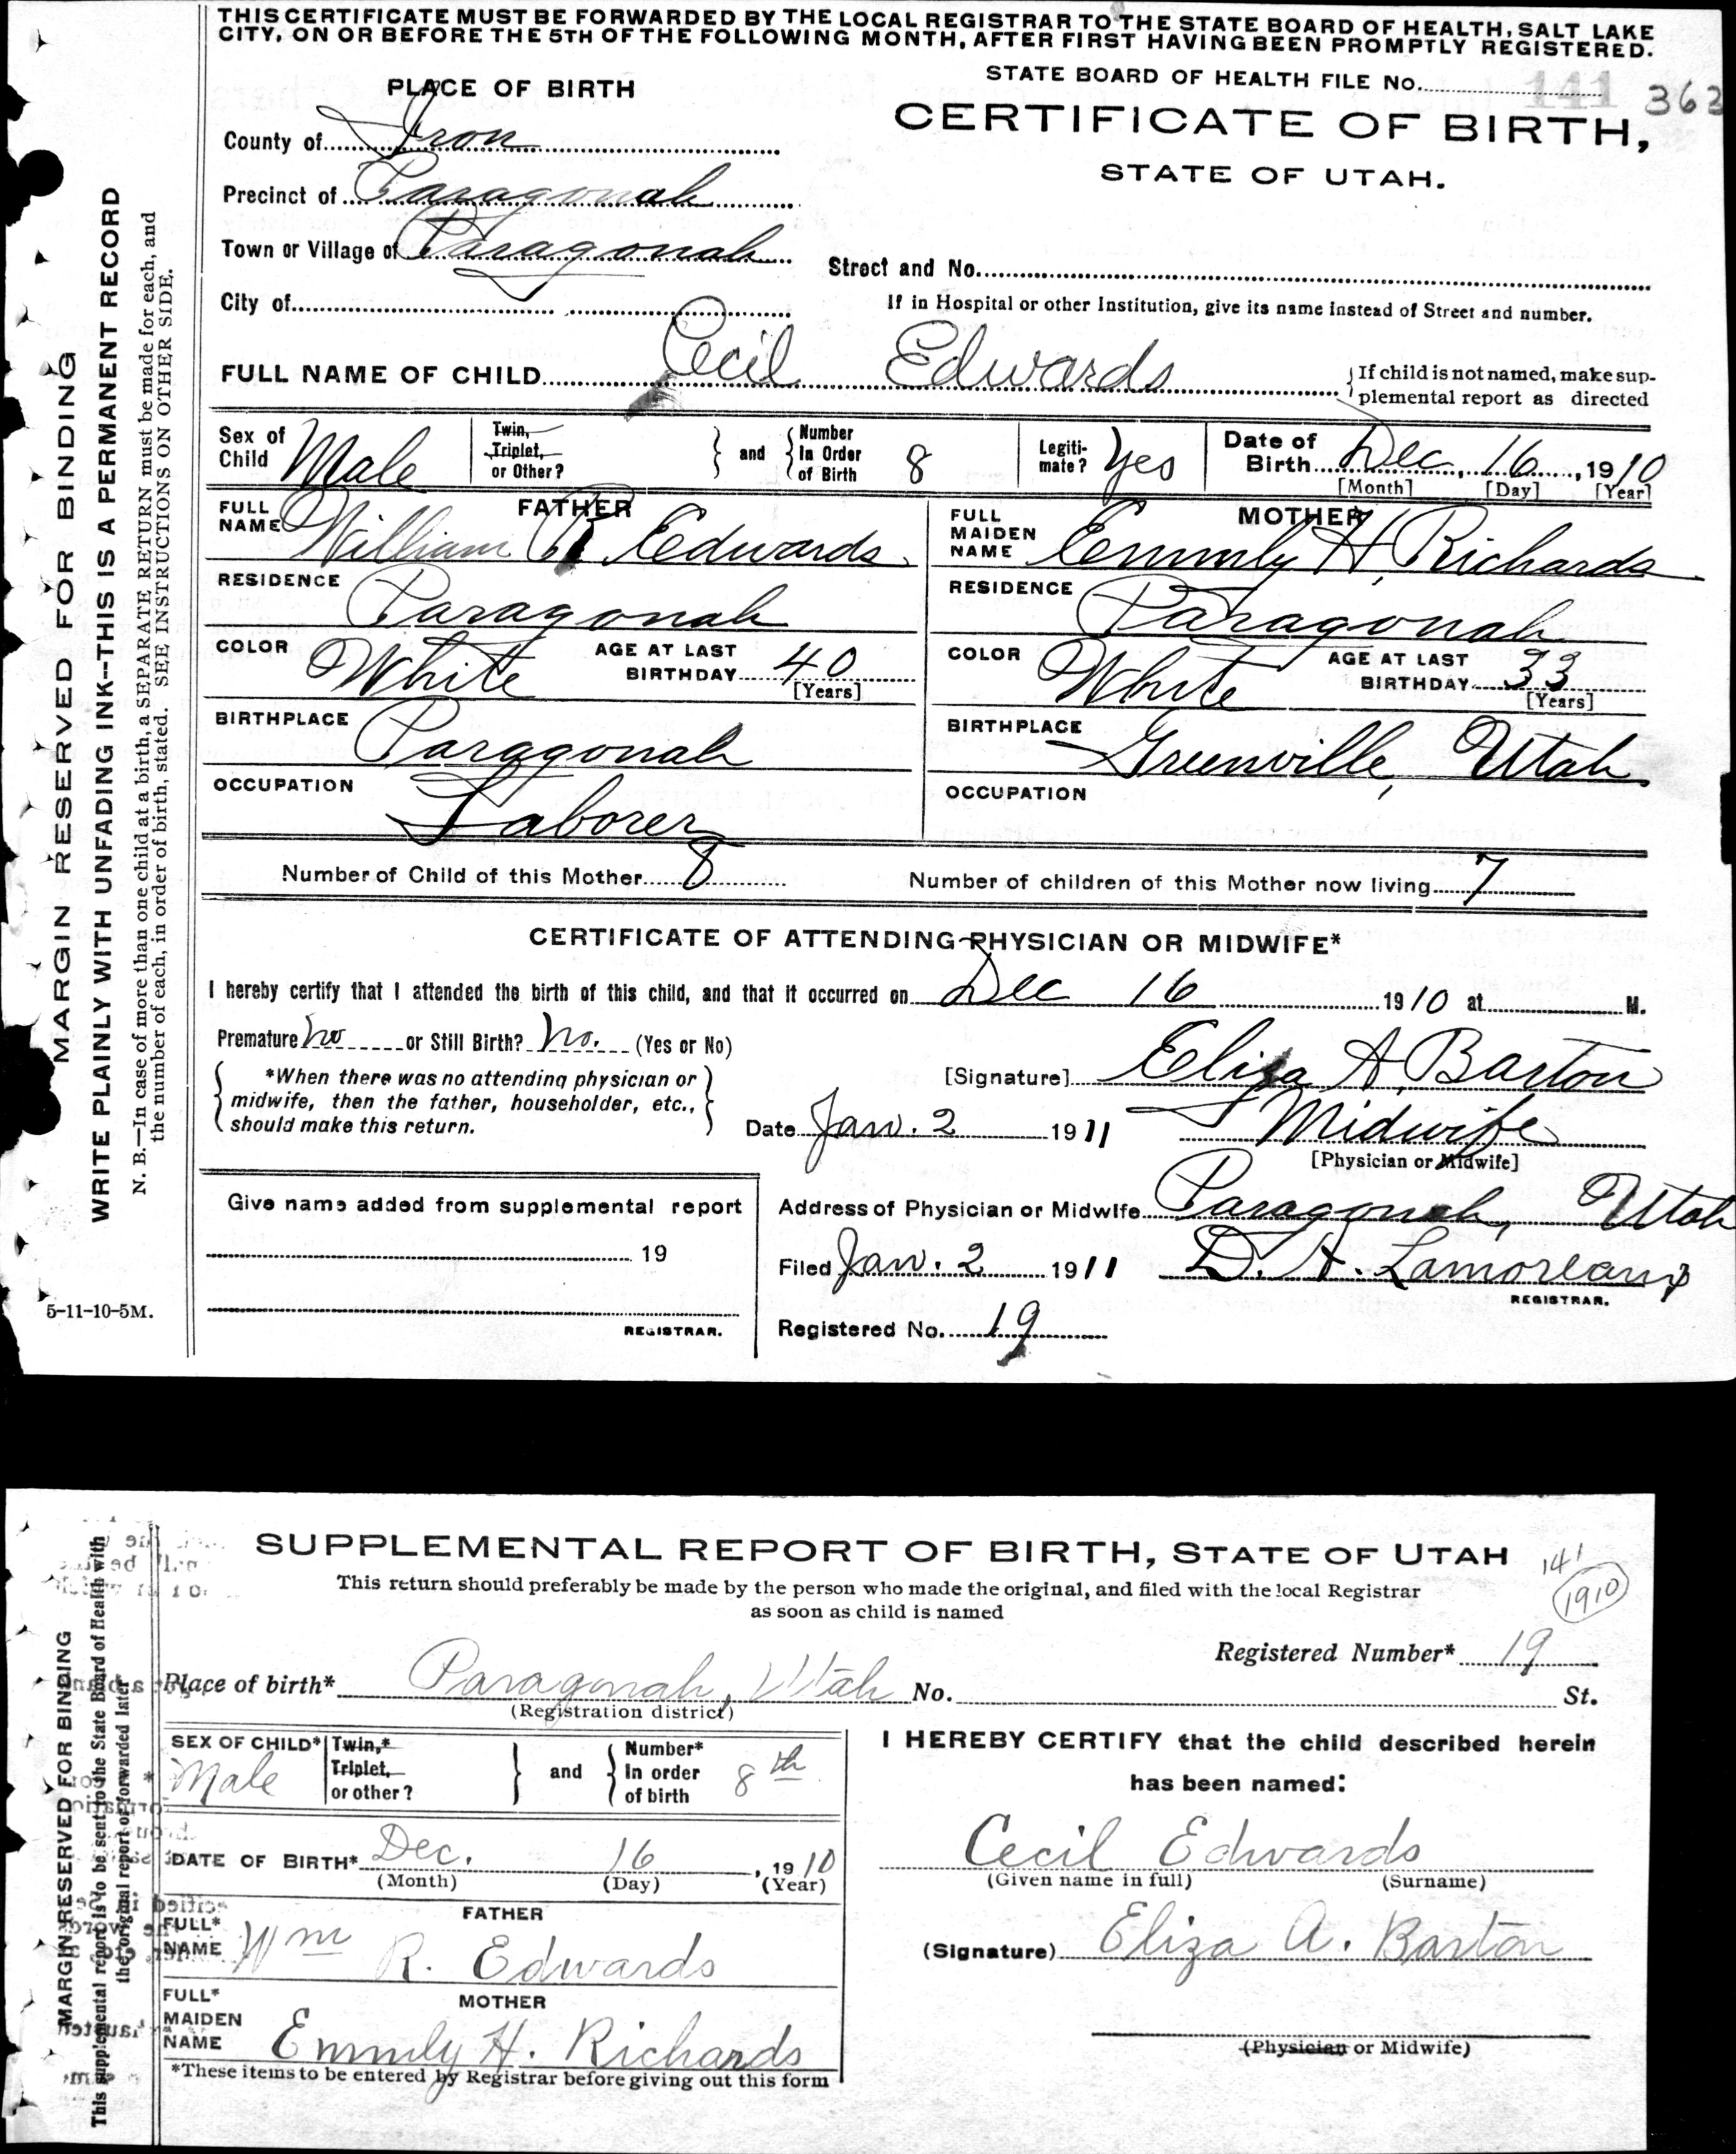 THIS CERTIFICATE MUST BE FORWARDED BY THE LOCAL REGISTRAR TO THE STATE BOARD OF HEALTH, SALT LAKE
CITY, ON OR BEFORE THE 5TH OF THE FOLLOWING MONTH, AFTER FIRST HAVING BEEN PROMPTLY REGISTERED.
STATE BOARD OF HEALTH FILE No. 141 363
PLACE OF BIRTH
CERTIFICATE OF BIRTH,
STATE OF UTAH.
County of Iron
Precinct of Paragonah
Town or Village of Paragonah
Street and No.
City of
If in Hospital or other Institution, give its name instead of Street and number.
FULL NAME OF CHILD Cecil Edwards
If child is not named, make sup-
plemental report as directed
Sex of Child Male
Twin, Triplet, or Other?
and
Number In Order of Birth 8
Legiti-mate? Yes
Date of Birth Dec, 16, 1910
[Month] [Day] [Year]
FATHER
FULL NAME William R Edwards.
RESIDENCE Paragonah
COLOR White AGE AT LAST BIRTHDAY 40
[Years]
BIRTHPLACE Paragonah
OCCUPATION Laborer
MOTHER
FULL MAIDEN NAME Emmly H, Richards
RESIDENCE Paragonah
COLOR White AGE AT LAST BIRTHDAY 33
[Years]
BIRTHPLACE Greenville, Utah.
OCCUPATION
Number of Child of this Mother 8 Number of children of this Mother now living 7
CERTIFICATE OF ATTENDING PHYSICIAN OR MIDWIFE*
I hereby certify that I attended the birth of this child, and that it occurred on Dec 16 1910 at M.
Premature no or Still Birth? no. (Yes or No)
*When there was no attending physician or
midwife, then the father, householder, etc.,
should make this return.
[Signature] Eliza A. Barton
Date Jan. 2 1911 Midwife
[Physician or Midwife]
Give name added from supplemental report
19
REGISTRAR.
Address of Physician or Midwife Paragonah, Utah
Filed Jan. 2 1911 D. A. Lamoreaux
REGISTRAR.
Registered No. 19
MARGIN RESERVED FOR BINDING
WRITE PLAINLY WITH UNFADING INK--THIS IS A PERMANENT RECORD
N. B.—In case of more than one child at a birth, a SEPARATE RETURN must be made for each, and
the number of each, in order of birth, stated. SEE INSTRUCTIONS ON OTHER SIDE.
5-11-10-5M.
SUPPLEMENTAL REPORT OF BIRTH, STATE OF UTAH
141
1910
This return should preferably be made by the person who made the original, and filed with the local Registrar
as soon as child is named
Registered Number* 19
Place of birth* Paragonah, Utah No. St.
(Registration district)
SEX OF CHILD* Male
Twin,* Triplet, or other?
and
Number* In order of birth 8th
DATE OF BIRTH* Dec. 16, 1910
(Month) (Day) (Year)
FATHER
FULL* NAME Wm R. Edwards
MOTHER
FULL* MAIDEN NAME Emmly H. Richards
*These items to be entered by Registrar before giving out this form
I HEREBY CERTIFY that the child described herein
has been named:
Cecil Edwards
(Given name in full) (Surname)
(Signature) Eliza A. Barton
(Physician or Midwife)
MARGIN RESERVED FOR BINDING
This supplemental report is to be sent to the State Board of Health with
the original report or forwarded later